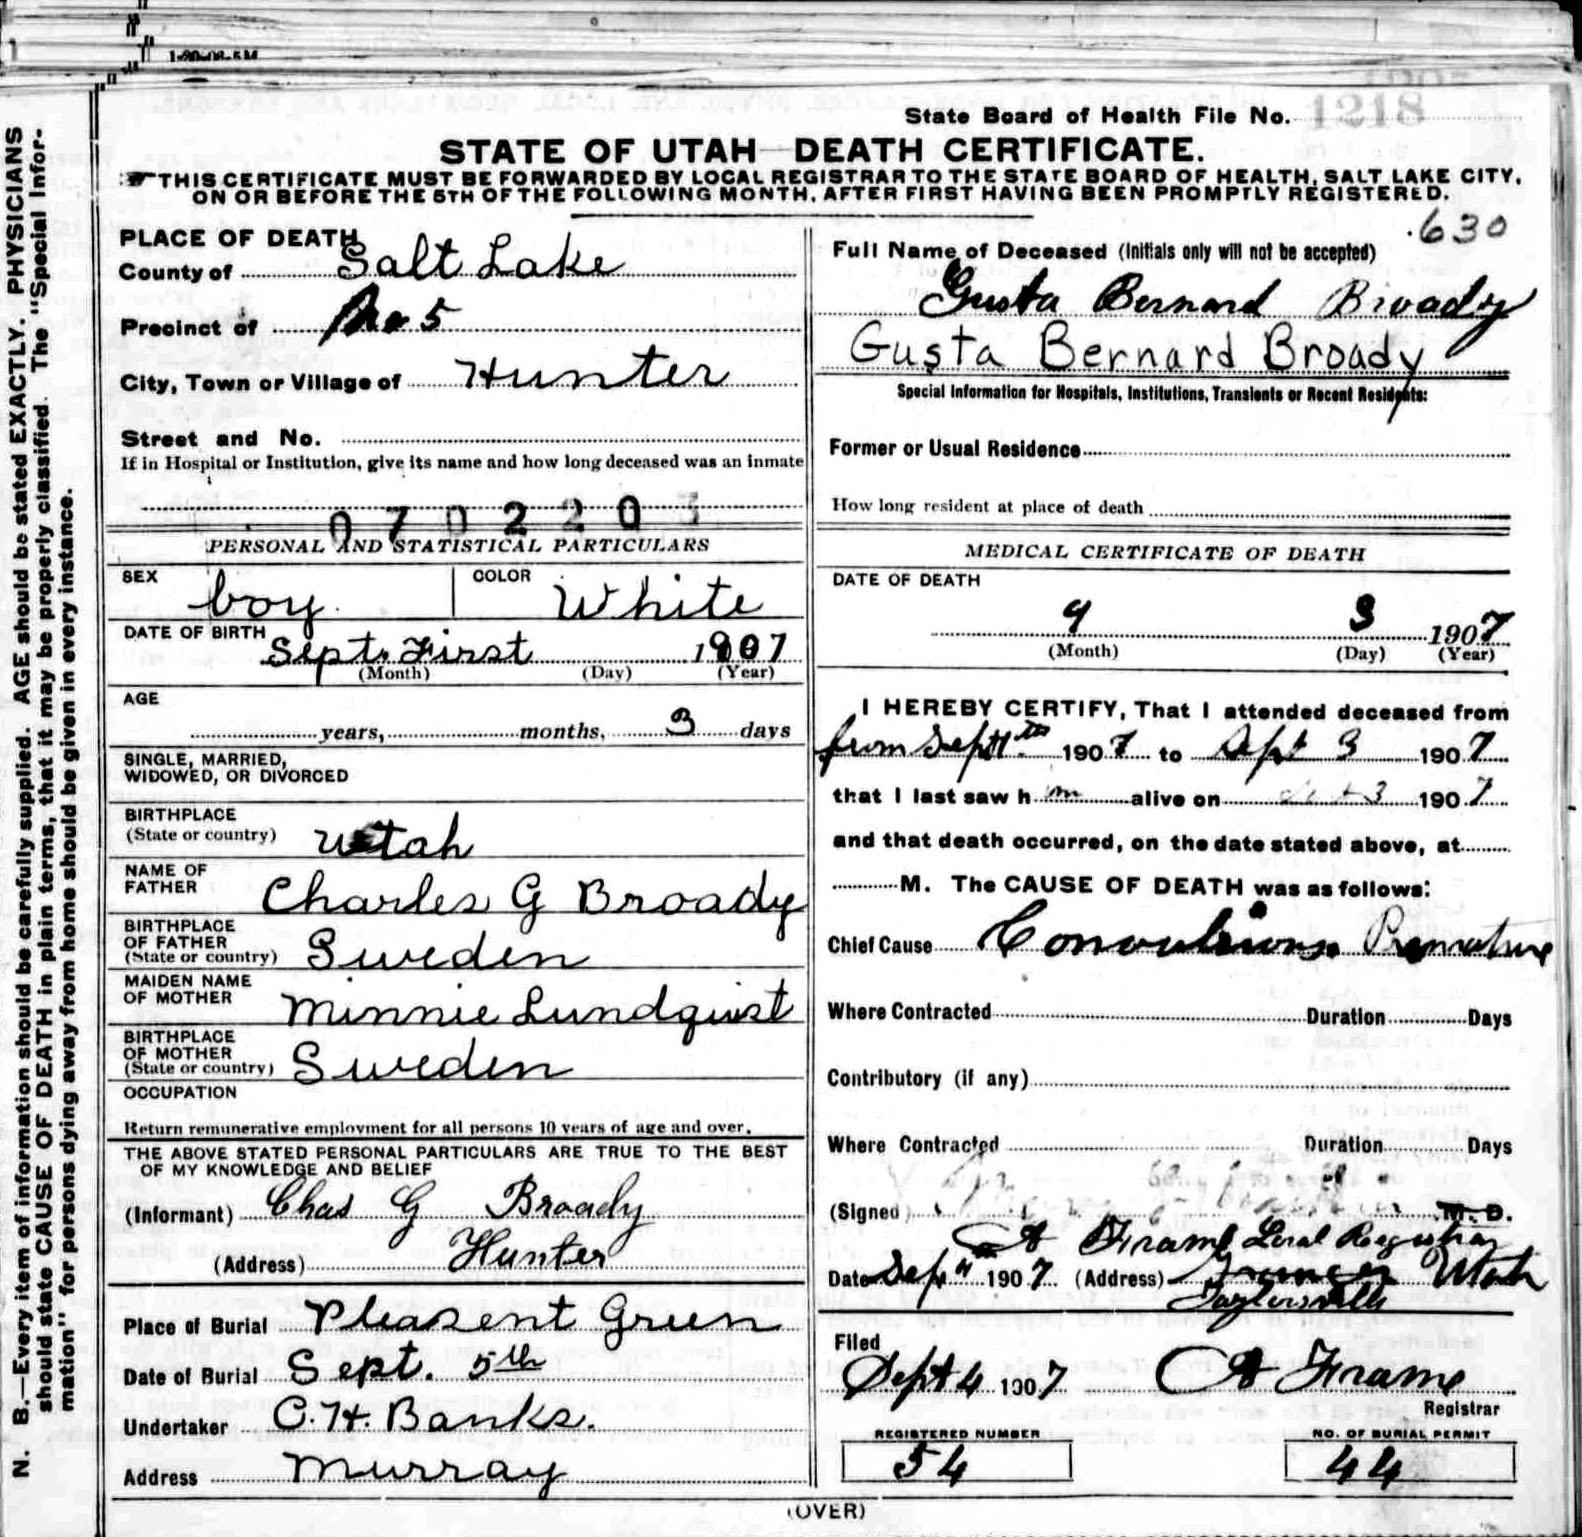 1-20-08-5M
State Board of Health File No. 1218
STATE OF UTAH—DEATH CERTIFICATE.
☛THIS CERTIFICATE MUST BE FORWARDED BY LOCAL REGISTRAR TO THE STATE BOARD OF HEALTH, SALT LAKE CITY,
ON OR BEFORE THE 5TH OF THE FOLLOWING MONTH, AFTER FIRST HAVING BEEN PROMPTLY REGISTERED.
N. B.—Every item of information should be carefully supplied. AGE should be stated EXACTLY. PHYSICIANS
should state CAUSE OF DEATH in plain terms, that it may be properly classified. The "Special Infor-
mation" for persons dying away from home should be given in every instance.
PLACE OF DEATH
County of Salt Lake
Precinct of No 5
City, Town or Village of Hunter
Street and No.
If in Hospital or Institution, give its name and how long deceased was an inmate
0702203
PERSONAL AND STATISTICAL PARTICULARS
SEX boy. COLOR White
DATE OF BIRTH Sept. First 1907
(Month) (Day) (Year)
AGE
years, months, 3 days
SINGLE, MARRIED,
WIDOWED, OR DIVORCED
BIRTHPLACE
(State or country) Utah
NAME OF
FATHER Charles G Broady
BIRTHPLACE
OF FATHER
(State or country) Sweden
MAIDEN NAME
OF MOTHER Minnie Lundquist
BIRTHPLACE
OF MOTHER
(State or country) Sweden
OCCUPATION
Return remunerative employment for all persons 10 years of age and over.
THE ABOVE STATED PERSONAL PARTICULARS ARE TRUE TO THE BEST
OF MY KNOWLEDGE AND BELIEF
(Informant) Chas G Broady
(Address) Hunter
Place of Burial Pleasent Green
Date of Burial Sept. 5th
Undertaker C. H. Banks.
Address Murray
.630
Full Name of Deceased (Initials only will not be accepted)
Gusta Bernard Broady
Gusta Bernard Broady
Special Information for Hospitals, Institutions, Transients or Recent Residents:
Former or Usual Residence
How long resident at place of death
MEDICAL CERTIFICATE OF DEATH
DATE OF DEATH
9 3 1907
(Month) (Day) (Year)
I HEREBY CERTIFY, That I attended deceased from
from Sept 1st 1907 to Sept 3 1907
that I last saw him alive on Sept 3 1907
and that death occurred, on the date stated above, at
M. The CAUSE OF DEATH was as follows:
Chief Cause Convulsions. Premature
Where Contracted Duration Days
Contributory (if any)
Where Contracted Duration Days
(Signed) M. D.
A Frame Local Registrar
Date Sep 4 1907 (Address) Granger Utah
Taylorsville
Filed
Sept 4 1907 A Frame
Registrar
REGISTERED NUMBER NO. OF BURIAL PERMIT
54 44
(OVER)